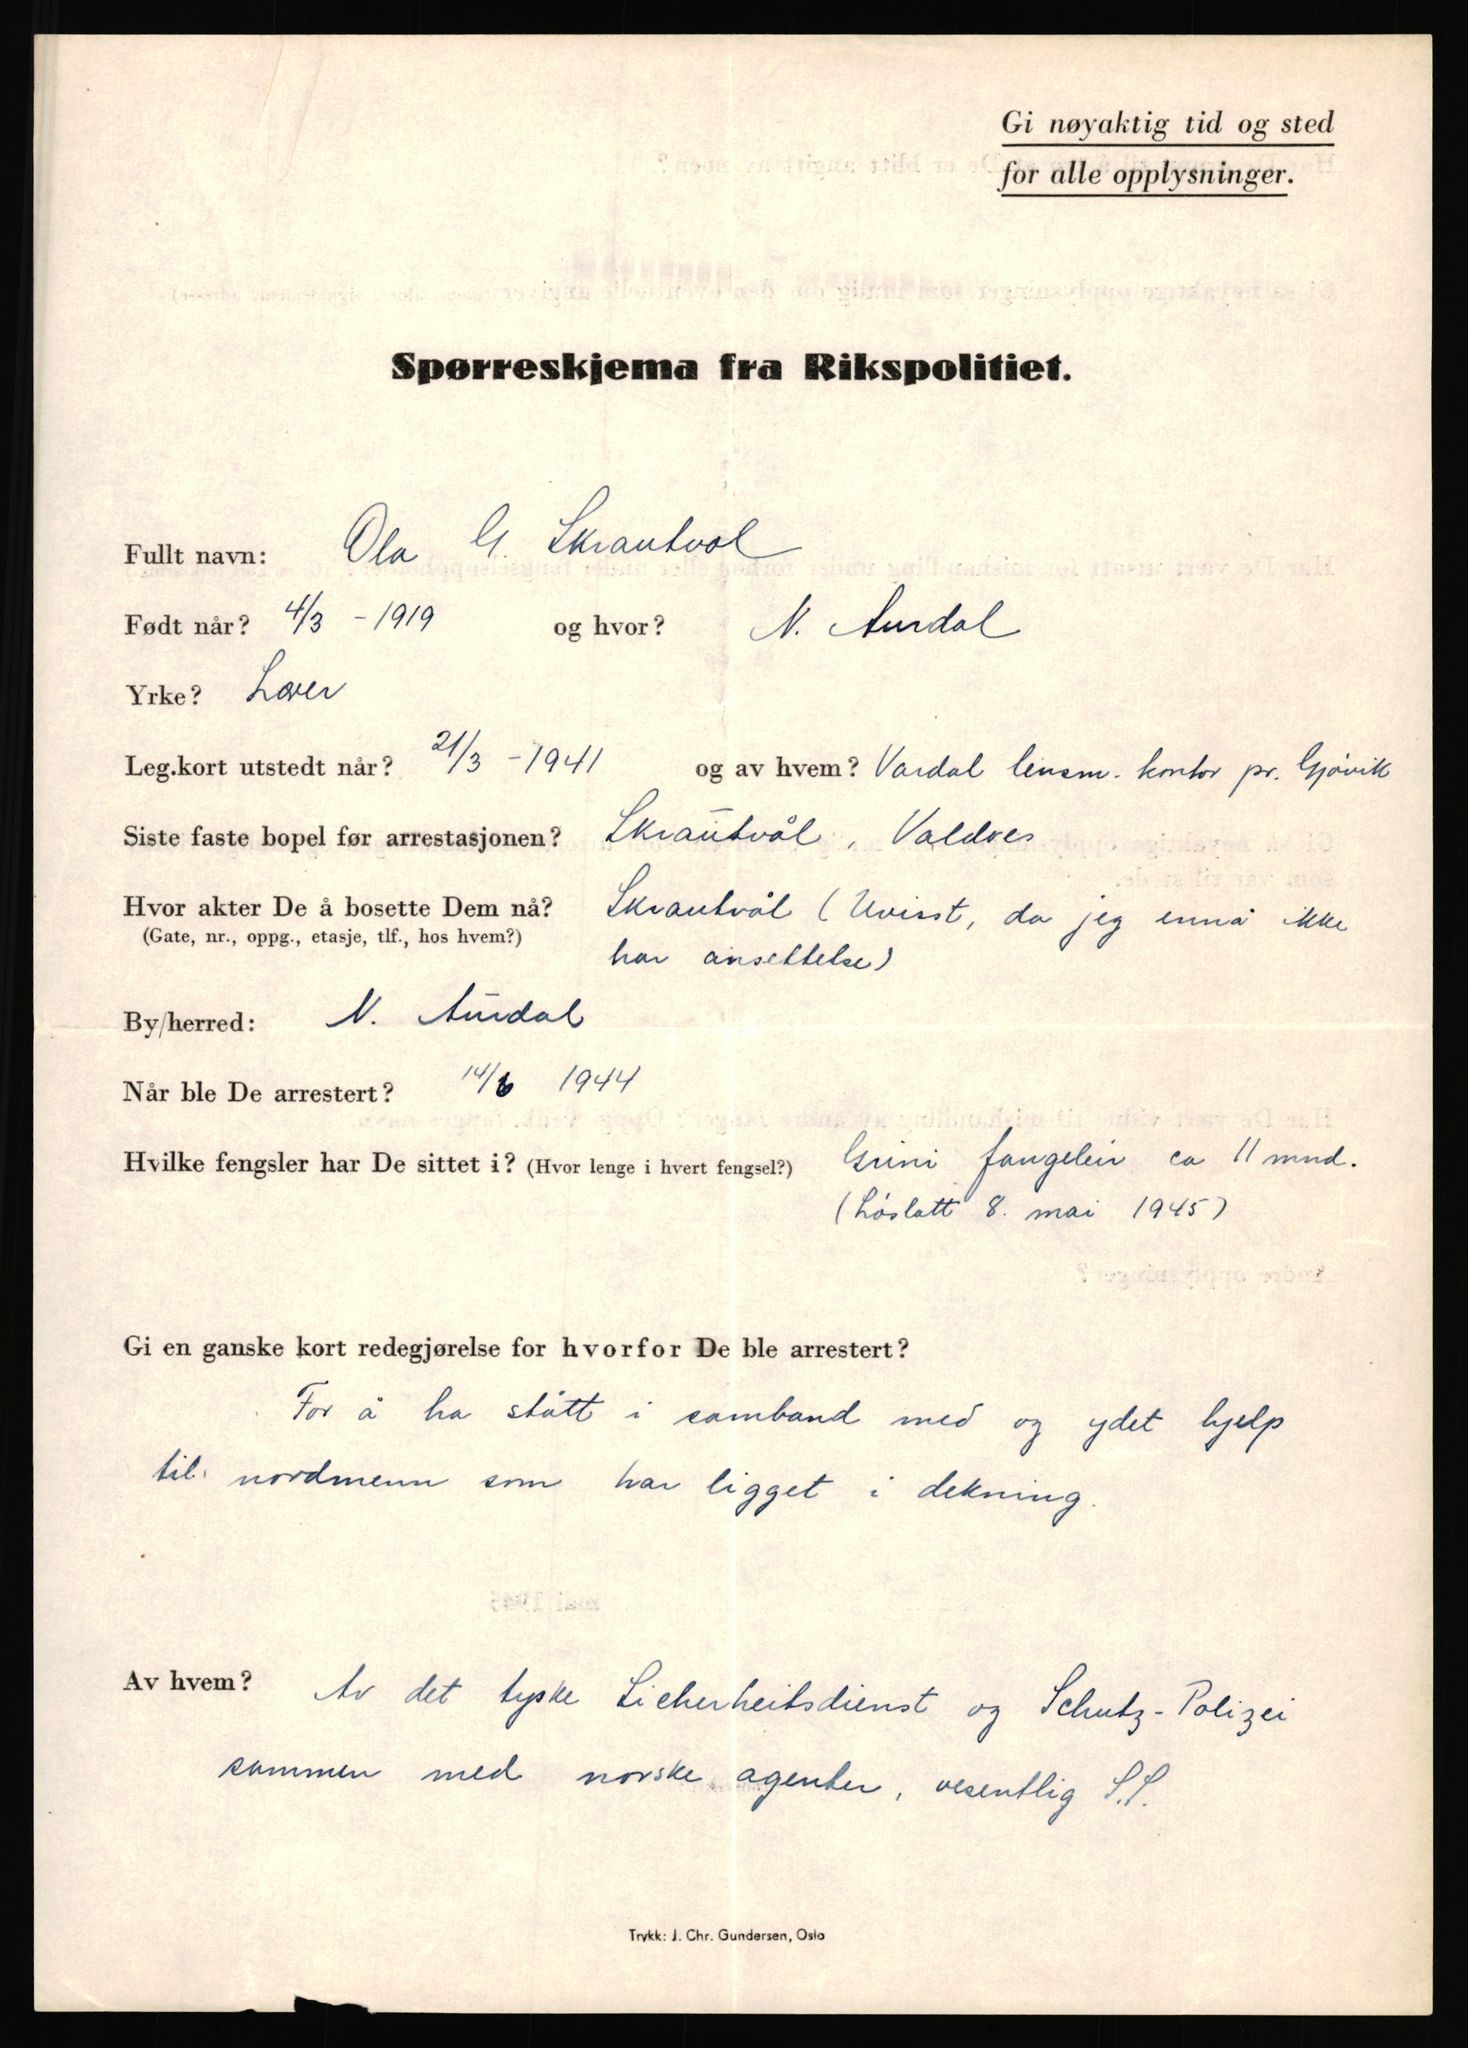 Gi nøyaktig tid og sted
for alle opplysninger.
Spørreskjema fra Rikspolitiet.
Fullt navn: Ola G. Skrautvol
Født når? 4/3 - 1919 og hvor? N. Aurdal
Yrke? Lærer
Leg.kort utstedt når? 21/3 - 1941 og av hvem? Vardal lensm. kontor pr. Gjøvik
Siste faste bopel før arrestasjonen? Skrautvål, Valdres
Hvor akter De å bosette Dem nå? Skrautvål (Uvisst, da jeg ennå ikke
(Gate, nr., oppg., etasje, tlf., hos hvem?) har ansettelse)
By/herred: N. Aurdal
Når ble De arrestert? 14/6 1944
Hvilke fengsler har De sittet i? (Hvor lenge i hvert fengsel?) Grini fangeleir ca 11 mnd.
(Løslatt 8. mai 1945)
Gi en ganske kort redegjørelse for hvorfor De ble arrestert?
For å ha stått i samband med og ydet hjelp
til nordmenn som har ligget i dekning.
Av hvem? Av det tyske Sicherheitsdienst og Schutz-Polizei
sammen med norske agenter, vesentlig S.S.
Trykk: J. Chr. Gundersen, Oslo